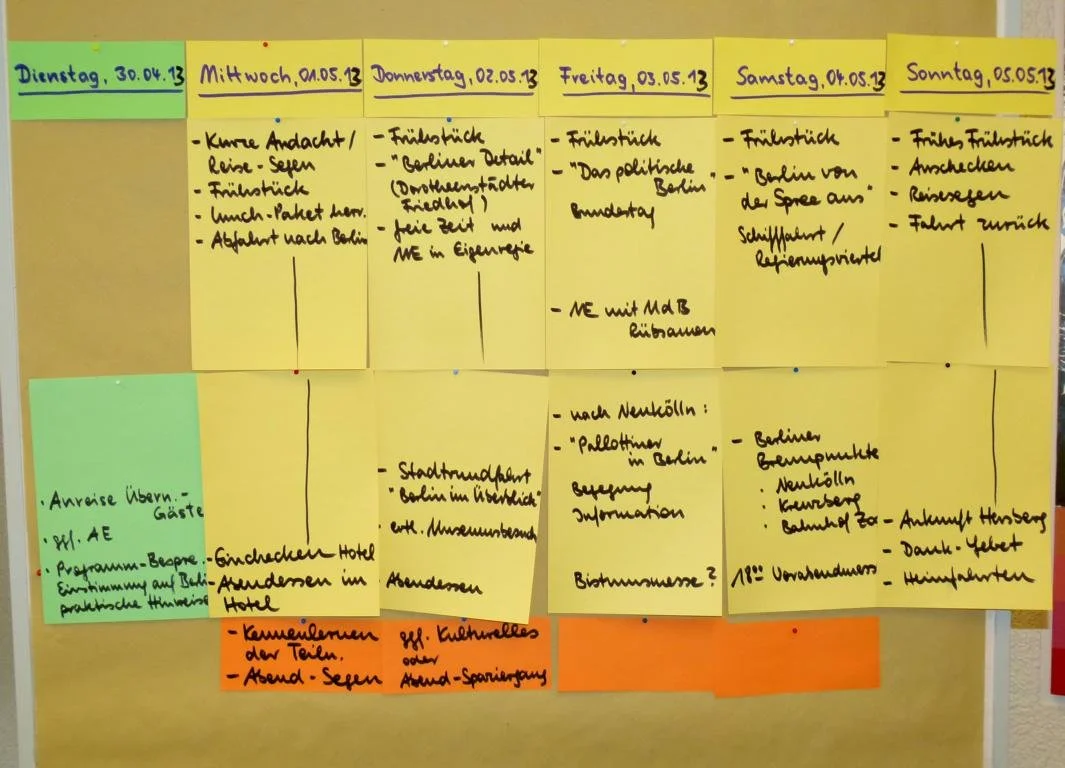 Dienstag, 30.04.13
Mittwoch, 01.05.13
Donnerstag, 02.05.13
Freitag, 03.05.13
Samstag, 04.05.13
Sonntag, 05.05.13
- Kurze Andacht /
Reise-Segen
- Frühstück
- Lunch-Paket herr.
- Abfahrt nach Berlin
- Frühstück
- "Berliner Detail"
(Dorotheenstädter
Friedhof)
- freie Zeit und
ME in Eigenregie
- Frühstück
- "Das politische
Berlin"
Bundestag
- ME mit MdB
Rübsamen
- Frühstück
- "Berlin von
der Spree aus"
Schifffahrt /
Regierungsviertel
- Frühes Frühstück
- Auschecken
- Reisesegen
- Fahrt zurück
· Anreise Übern.-
Gäste
· ggf. AE
· Programm-Bespre.
Einstimmung auf Berli
praktische Hinweise
- Einchecken Hotel
- Abendessen im
Hotel
- Stadtrundfahrt
"Berlin im Überblick"
· evtl. Museumsbesuch
· Abendessen
- nach Neukölln:
- "Pallottiner
in Berlin"
Begegnung
Information
Bistumsmesse?
- Berliner
Brennpunkte
· Neukölln
· Kreuzberg
· Bahnhof Zoo
18⁰⁰ Vorabendmess
- Ankunft Hersberg
- Dank-Gebet
- Heimfahrten
- Kennenlernen
der Teiln.
- Abend-Segen
ggf. Kulturelles
oder
Abend-Spaziergang